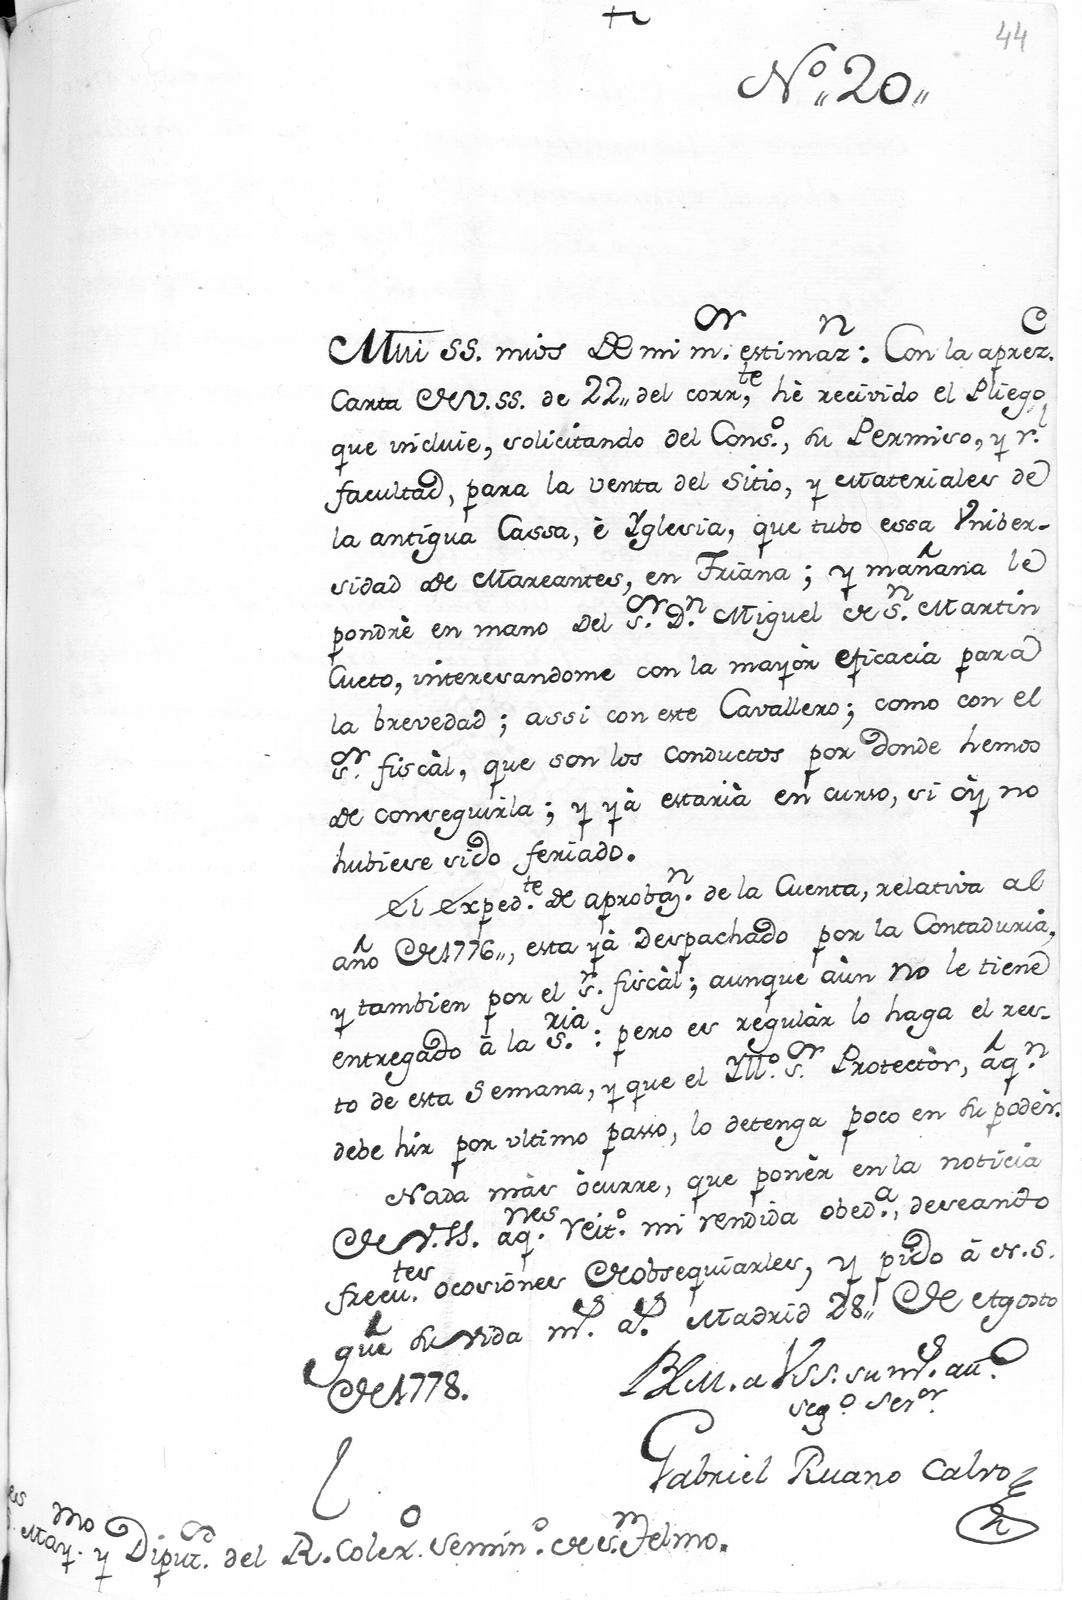 44
Nº,, 20,,
Mui SS. mios De mi m.or estimaz.n: Con la aprez.e
Carta de V.SS. de 22,, del corr.te, hè recivido el Pliego
que incluie, solicitando del Cons.o, su Permiso, y r.l
facultad, para la venta del Sitio, y Materiales de
la antigua Cassa, è Yglesia, que tubo essa Vniber-
sidad de Mareantes, en Triana; y mañana le
pondrè en mano del S.or D.n Miguel de S.n Martin
Cueto, interesandome con la mayòr eficacia para
la brevedad; assi con este Cavallero; como con el
S.or fiscàl, que son los conductos por donde hemos
de conseguirla; y yà estarià en curso, si òy no
hubiese sido feriado.
El Exped.te de aprobaz.n de la Cuenta, relativa al
año de 1776,, esta yà Despachado por la Contaduria,
y tambien por el S.r fiscàl; aunque aùn no le tiene
entregado à la S.ria: pero es regulàr lo haga el res-
to de esta Semana, y que el Yll.o S.or Protectòr, à q.n
debe hir por vltimo passo, lo detenga poco en su podèr.
Nada màs òcurre, que ponèr en la noticia
de V.SS. aq.nes reit.o mi rendida obed.a, deseando
frecu.tes ocosiònes de obsequiarles, y pido à N.S.
gue su vida m.s a.s Madrid 28,, de Agosto
de 1778.
BLM. a VSS. su m.s au.o
seg.o Ser.or
Gabriel Ruano Calvo
May.mo y Diput.s del R. Colex.o Semin.o de S.n Telmo.